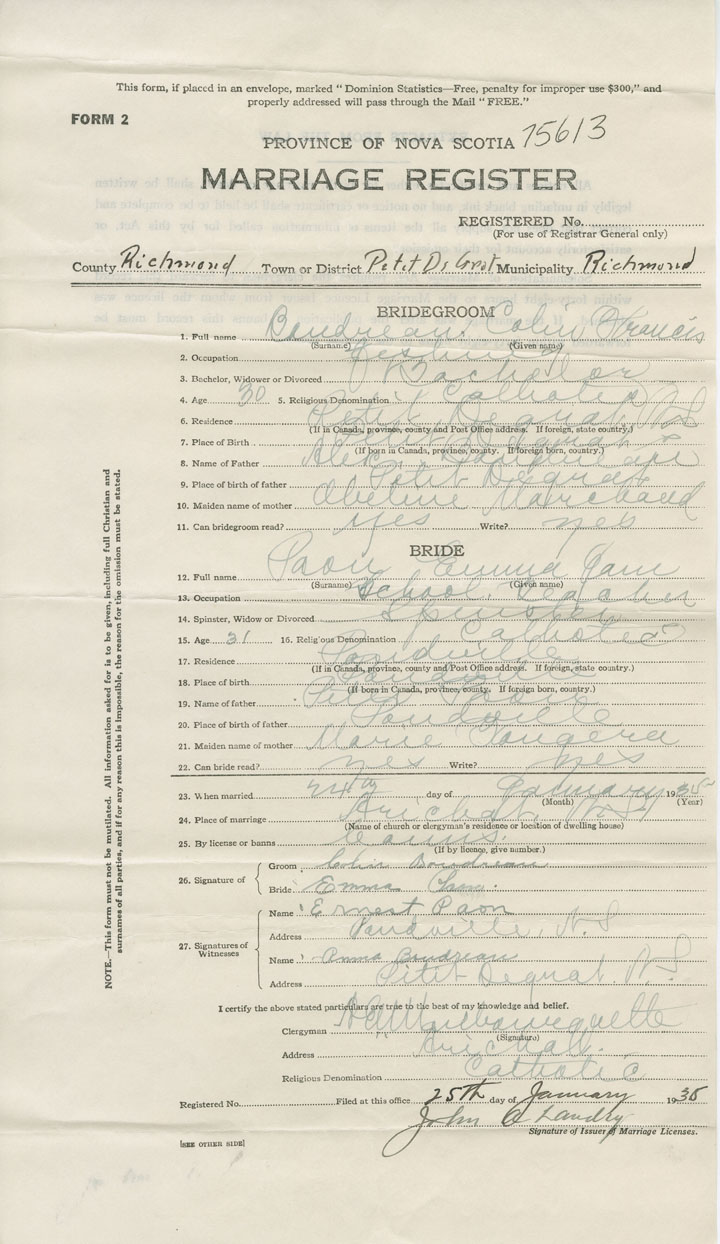 This form, if placed in an envelope, marked "Dominion Statistics—Free, penalty for improper use $300," and
properly addressed will pass through the Mail "FREE."
FORM 2
PROVINCE OF NOVA SCOTIA 75613
MARRIAGE REGISTER
REGISTERED No.
(For use of Registrar General only)
County Richmond Town or District Petit De Grat Municipality Richmond
BRIDEGROOM
1. Full name Boudreau Colin Francis
(Surname) (Given name)
2. Occupation
3. Bachelor, Widower or Divorced Bachelor
4. Age 30 5. Religious Denomination Catholic
6. Residence Petit Degrat NS
(If in Canada, province, county and Post Office address. If foreign, state country.)
7. Place of Birth Petit Degrat
(If born in Canada, province, county. If foreign born, country.)
8. Name of Father Alex Boudreau
9. Place of birth of father Petit Degrat
10. Maiden name of mother Obeline Marchand
11. Can bridegroom read? yes Write? yes
BRIDE
12. Full name Paon Emma Jane
(Surname) (Given name)
13. Occupation School Teacher
14. Spinster, Widow or Divorced Spinster
15. Age 31 16. Religious Denomination Catholic
17. Residence Pondville
(If in Canada, province, county and Post Office address. If foreign, state country.)
18. Place of birth Pondville
(If born in Canada, province, county. If foreign born, country.)
19. Name of father Paon
20. Place of birth of father Pondville
21. Maiden name of mother Marie
22. Can bride read? yes Write? yes
23. When married 24th day of January 1935
(Month) (Year)
24. Place of marriage Arichat NS
(Name of church or clergyman's residence or location of dwelling house)
25. By license or banns banns
(If by licence, give number.)
26. Signature of Groom Colin Boudreau
Bride Emma Paon
27. Signatures of Witnesses Name Ernest Paon
Address Pondville, N.S
Name Anna Boudreau
Address Petit Degrat, N.S
I certify the above stated particulars are true to the best of my knowledge and belief.
Clergyman
(Signature)
Address Arichat
Religious Denomination Catholic
Registered No. Filed at this office 25th day of January 1935
John A Landry
Signature of Issuer of Marriage Licenses.
[SEE OTHER SIDE]
NOTE.—This form must not be mutilated. All information asked for is to be given, including full Christian and
surnames of all parties, and if for any reason this is impossible, the reason for the omission must be stated.